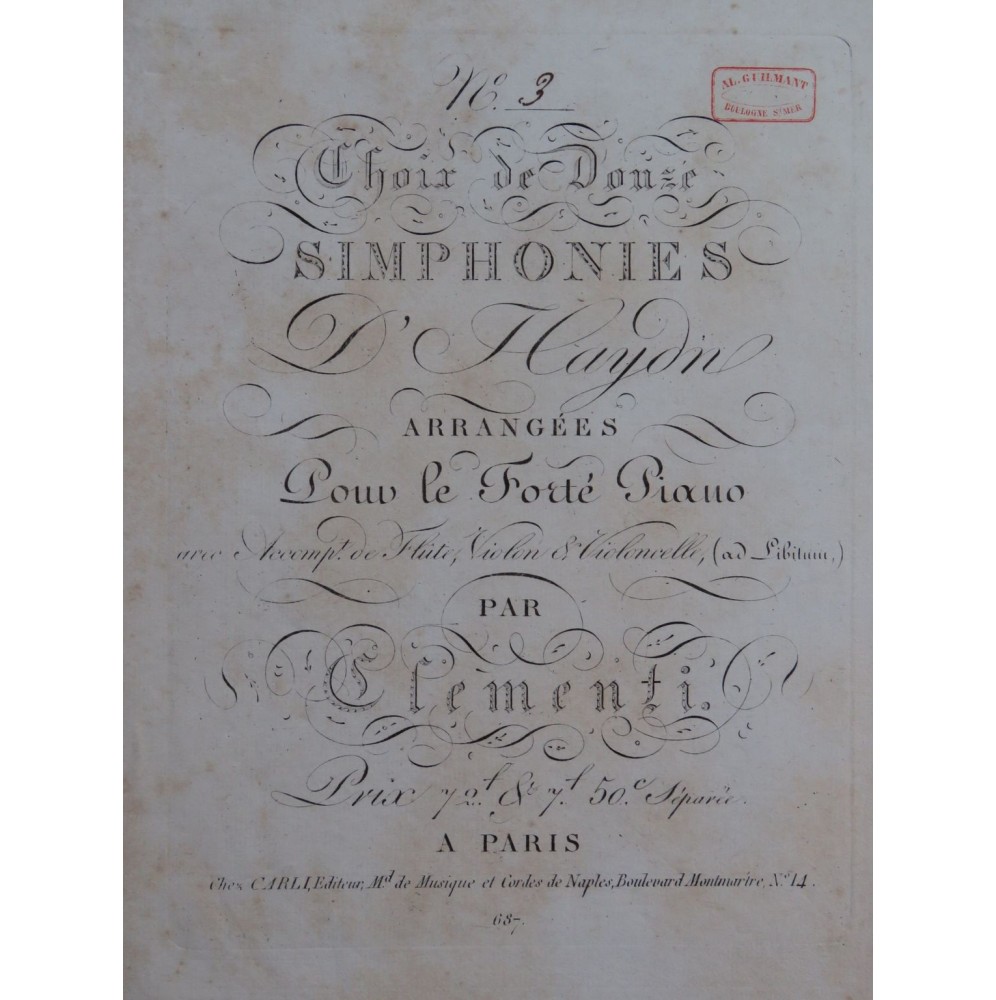 Nº. 3
AL. GUILMANT
BOULOGNE S/MER
Choix de Douze
SIMPHONIES
D'Haydn
ARRANGÉES
Pour le Forté Piano
avec Accompt. de Flûte, Violon & Violoncelle, (ad Libitum,)
PAR
Clèmenti.
Prix 72.f & 7.f 50.c Séparée.
A PARIS
Chez CARLI, Editeur, Md. de Musique et Cordes de Naples, Boulevard Montmartre, Nº. 14.
687.